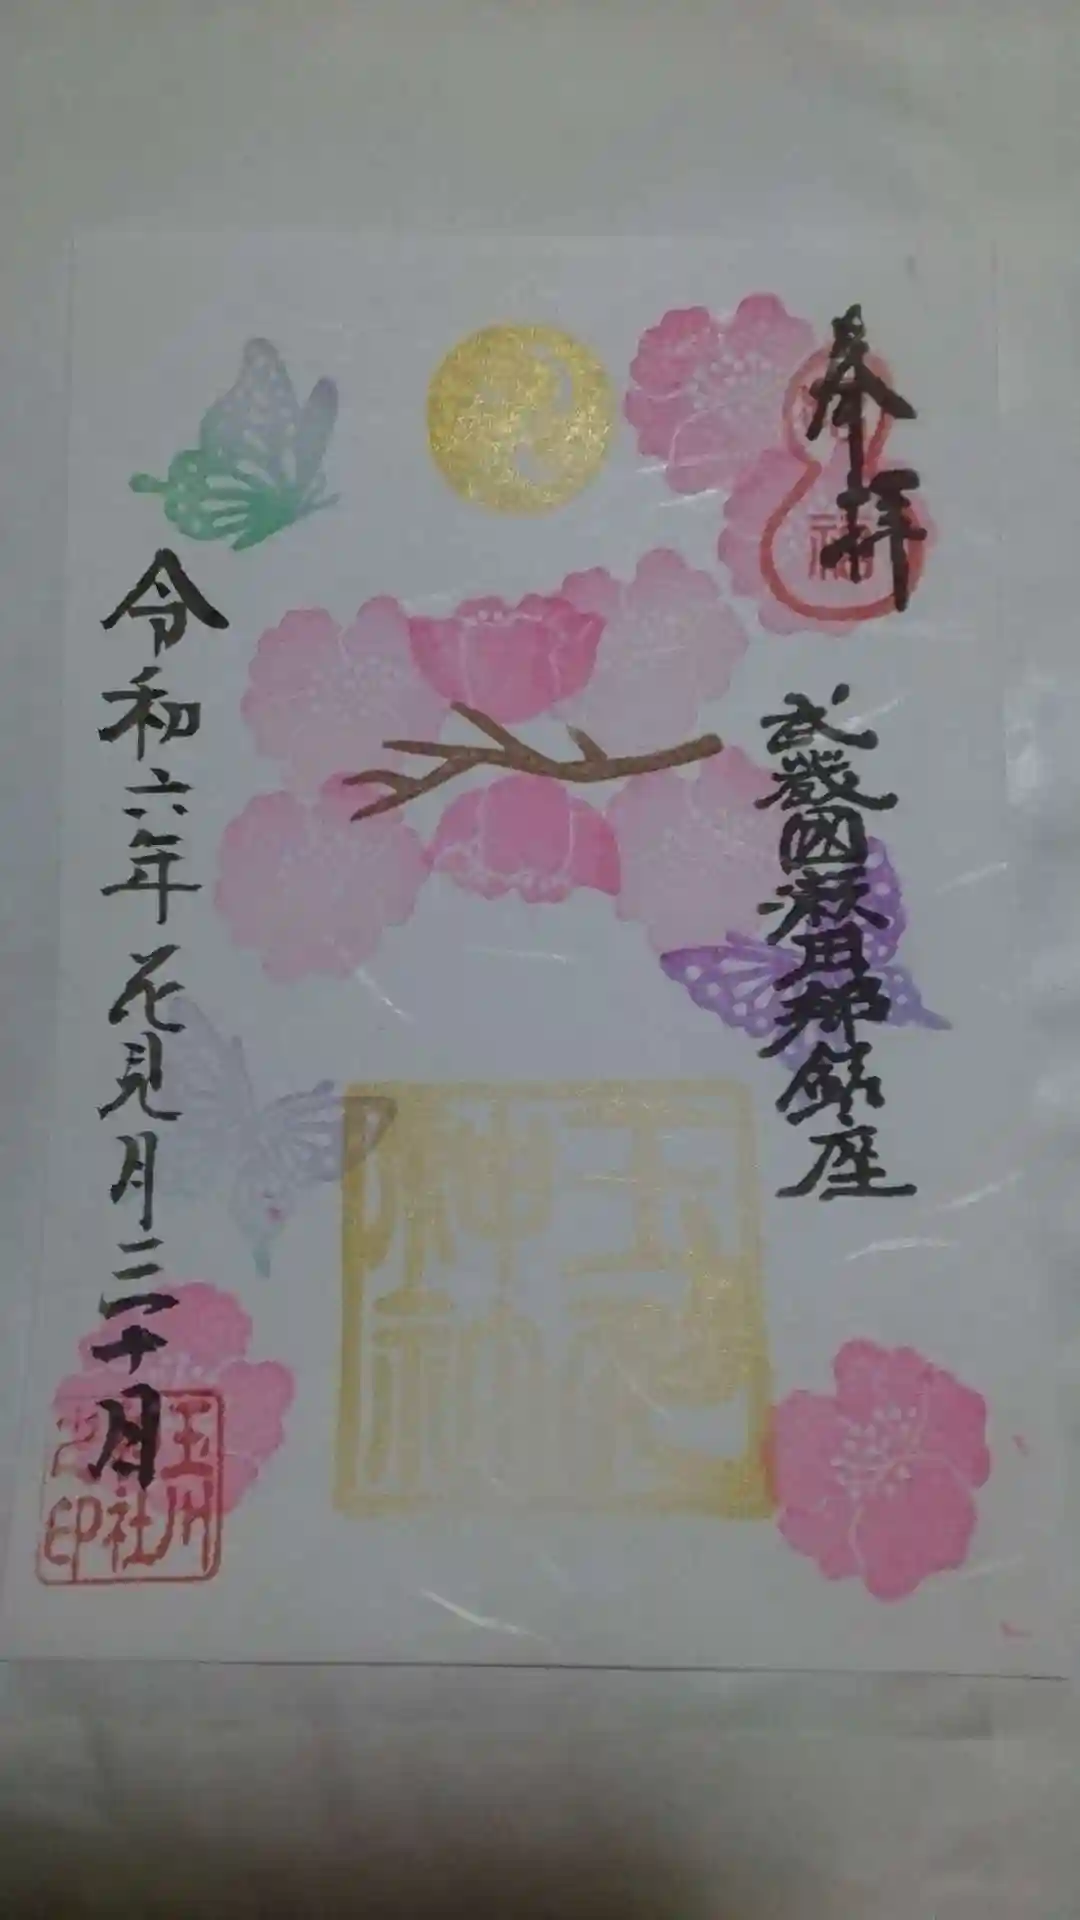 奉拝
福
武蔵国瀬田郷鎮座
玉川神社
令和六年花見月三十日
玉川
神社
之印